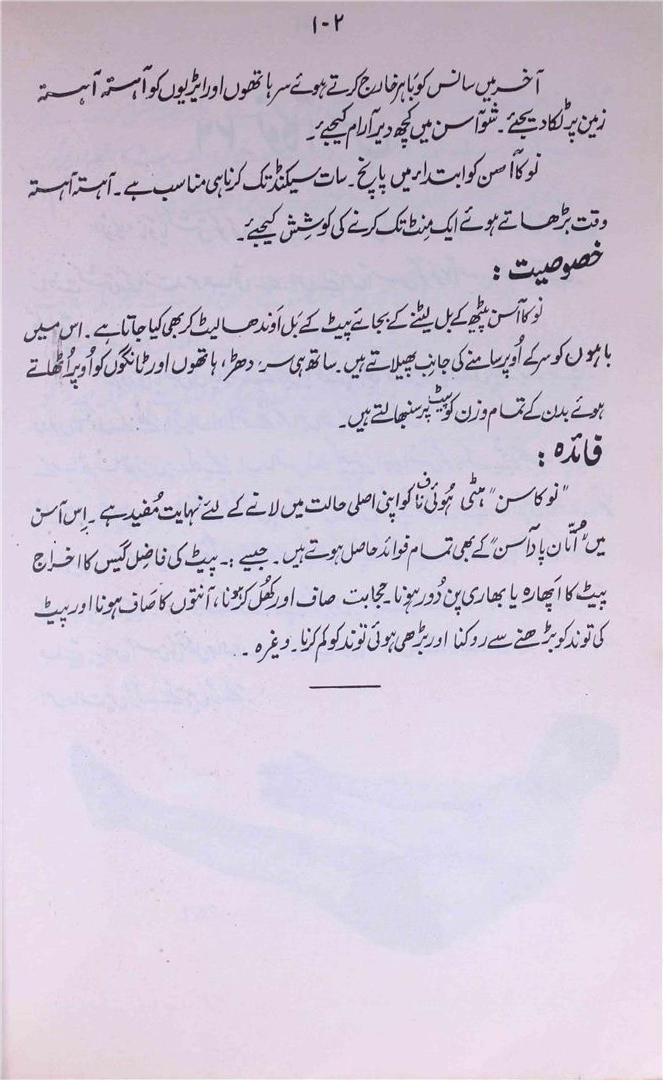 ۱۰۲
آخر میں سانس کو باہر خارج کرتے ہوئے سر ہاتھوں اور ایڑیوں کو آہستہ آہستہ
زمین پر ٹکا دیجئے۔ شوآسن میں کچھ دیر آرام کیجیے۔
نوکا آسن کو ابتداء میں پانچ۔ سات سیکنڈ تک کرنا ہی مناسب ہے۔ آہستہ آہستہ
وقت بڑھاتے ہوئے ایک منٹ تک کرنے کی کوشش کیجیے۔
خصوصیت :
نوکا آسن پیٹھ کے بل لیٹنے کے بجائے پیٹ کے بَل اَوندھا لیٹ کر بھی کیا جاتا ہے۔ اس میں
باہوں کو سر کے اُوپر سامنے کی جانب پھیلاتے ہیں۔ ساتھ ہی سر۔ دھڑ، ہاتھوں اور ٹانگوں کو اُوپر اُٹھاتے
ہوئے بدن کے تمام وزن کو پیٹ پر سنبھالتے ہیں۔
فائدہ :
"نوکاسن" ہٹی ہُوئی ناف کو اپنی اصلی حالت میں لانے کے لئے نہایت مُفید ہے۔ اِس آسن
میں "اُتّان پاد آسن" کے بھی تمام فوائد حاصل ہوتے ہیں۔ جیسے :۔ پیٹ کی فاضِل گیس کا اخراج
پیٹ کا اَپھارہ یا بھاری پن دُور ہونا۔ حجابت صاف اور کھُل کر ہونا، آنتوں کا صَاف ہونا اور پیٹ
کی توند کو بڑھنے سے روکنا اور بڑھی ہوئی توند کو کم کرنا۔ وغرہ۔